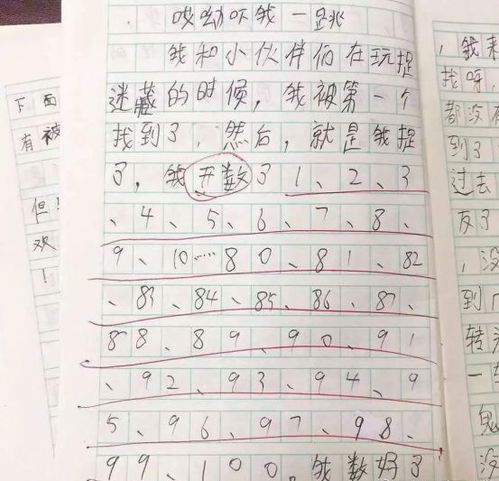 哎呦吓我一跳
我和小伙伴们在玩捉
迷藏的时候，我被第一个
找到了，然后，就是我捉
了，我开数了1、2、3
、4、5、6、7、8、
9、10……80、81、82
、83、84、85、86、87、
88、89、90、91
、92、93、94、9
5、96、97、98、
99、100，我数好了
下面
有被
但！
欢
！
，我来
找呀，
都没有
到了
过去
友了
，没
到
转
一
鬼
没